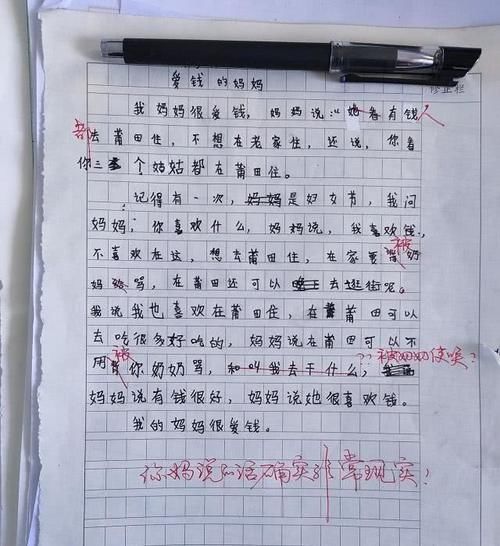 爱钱的妈妈
修正栏
我妈妈很爱钱，妈妈说：她看有钱人
都去莆田住，不想在老家住，还说，你看
你三个姑姑都在莆田住。
记得有一次，妈妈是妇女节，我问
妈妈，你喜欢什么，妈妈说，我喜欢钱，
不喜欢在这，想去莆田住，在家要被奶
奶骂，在莆田还可以去逛街呢。
我说我也喜欢在莆田住，在莆莆田可以
去吃很多好吃的，妈妈说在莆田可以不
用被你奶奶骂，和叫我去干什么，被奶奶使唤？
妈妈说有钱很好，妈妈说她很喜欢钱。
我的妈妈很爱钱。
你妈说的话确实非常现实！